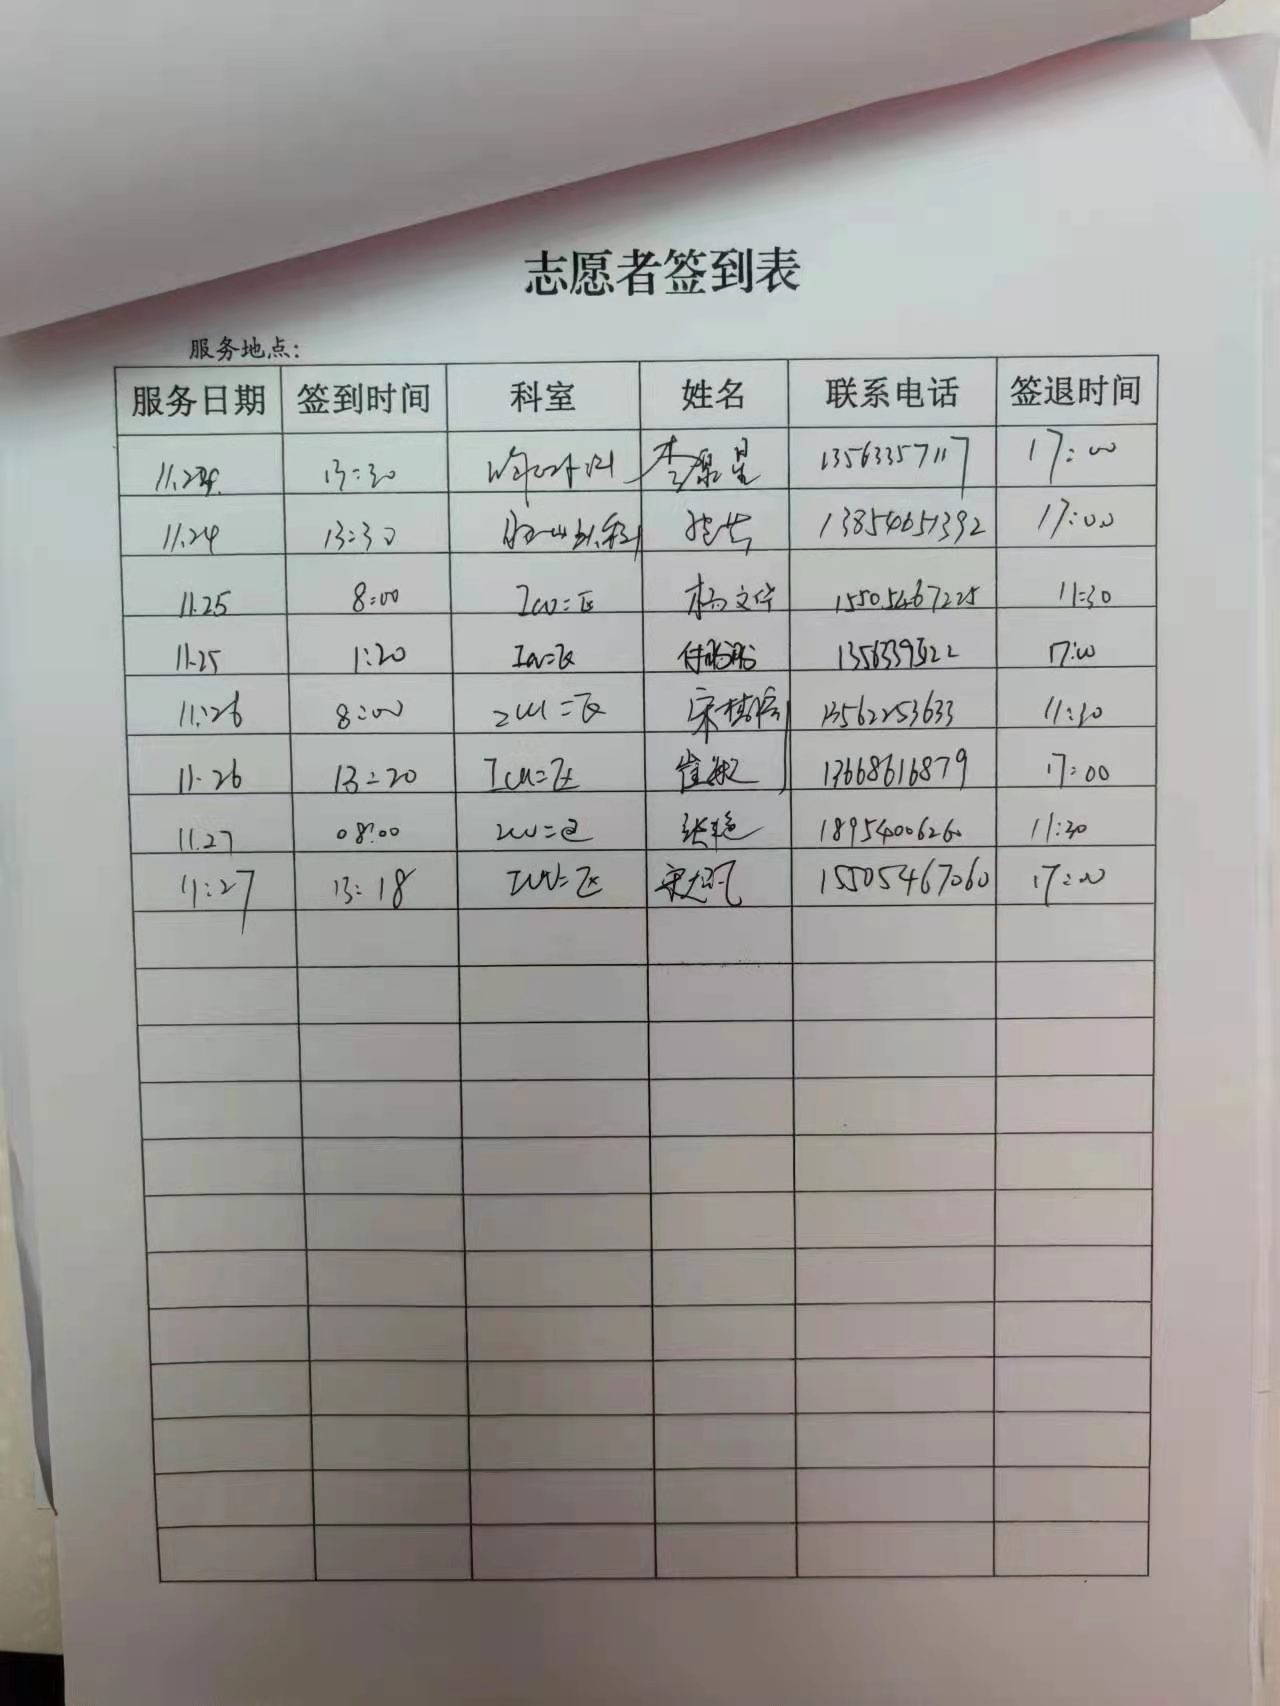 志愿者签到表
服务地点:
服务日期 签到时间 科室 姓名 联系电话 签退时间
11.24 13:30 13563357117 17:00
11.24 13:30 13854651392 17:00
11.25 8:00 ICU=区 杨文华 15505467225 11:30
11.25 1:20 ICU=区 17:00
11.26 8:00 ICU=区 13562253633 11:30
11.26 13:20 ICU=区 崔敏 13668616879 17:00
11.27 08:00 ICU=区 张艳 18954006260 11:30
11:27 13:18 ICU=区 15505467060 17:00